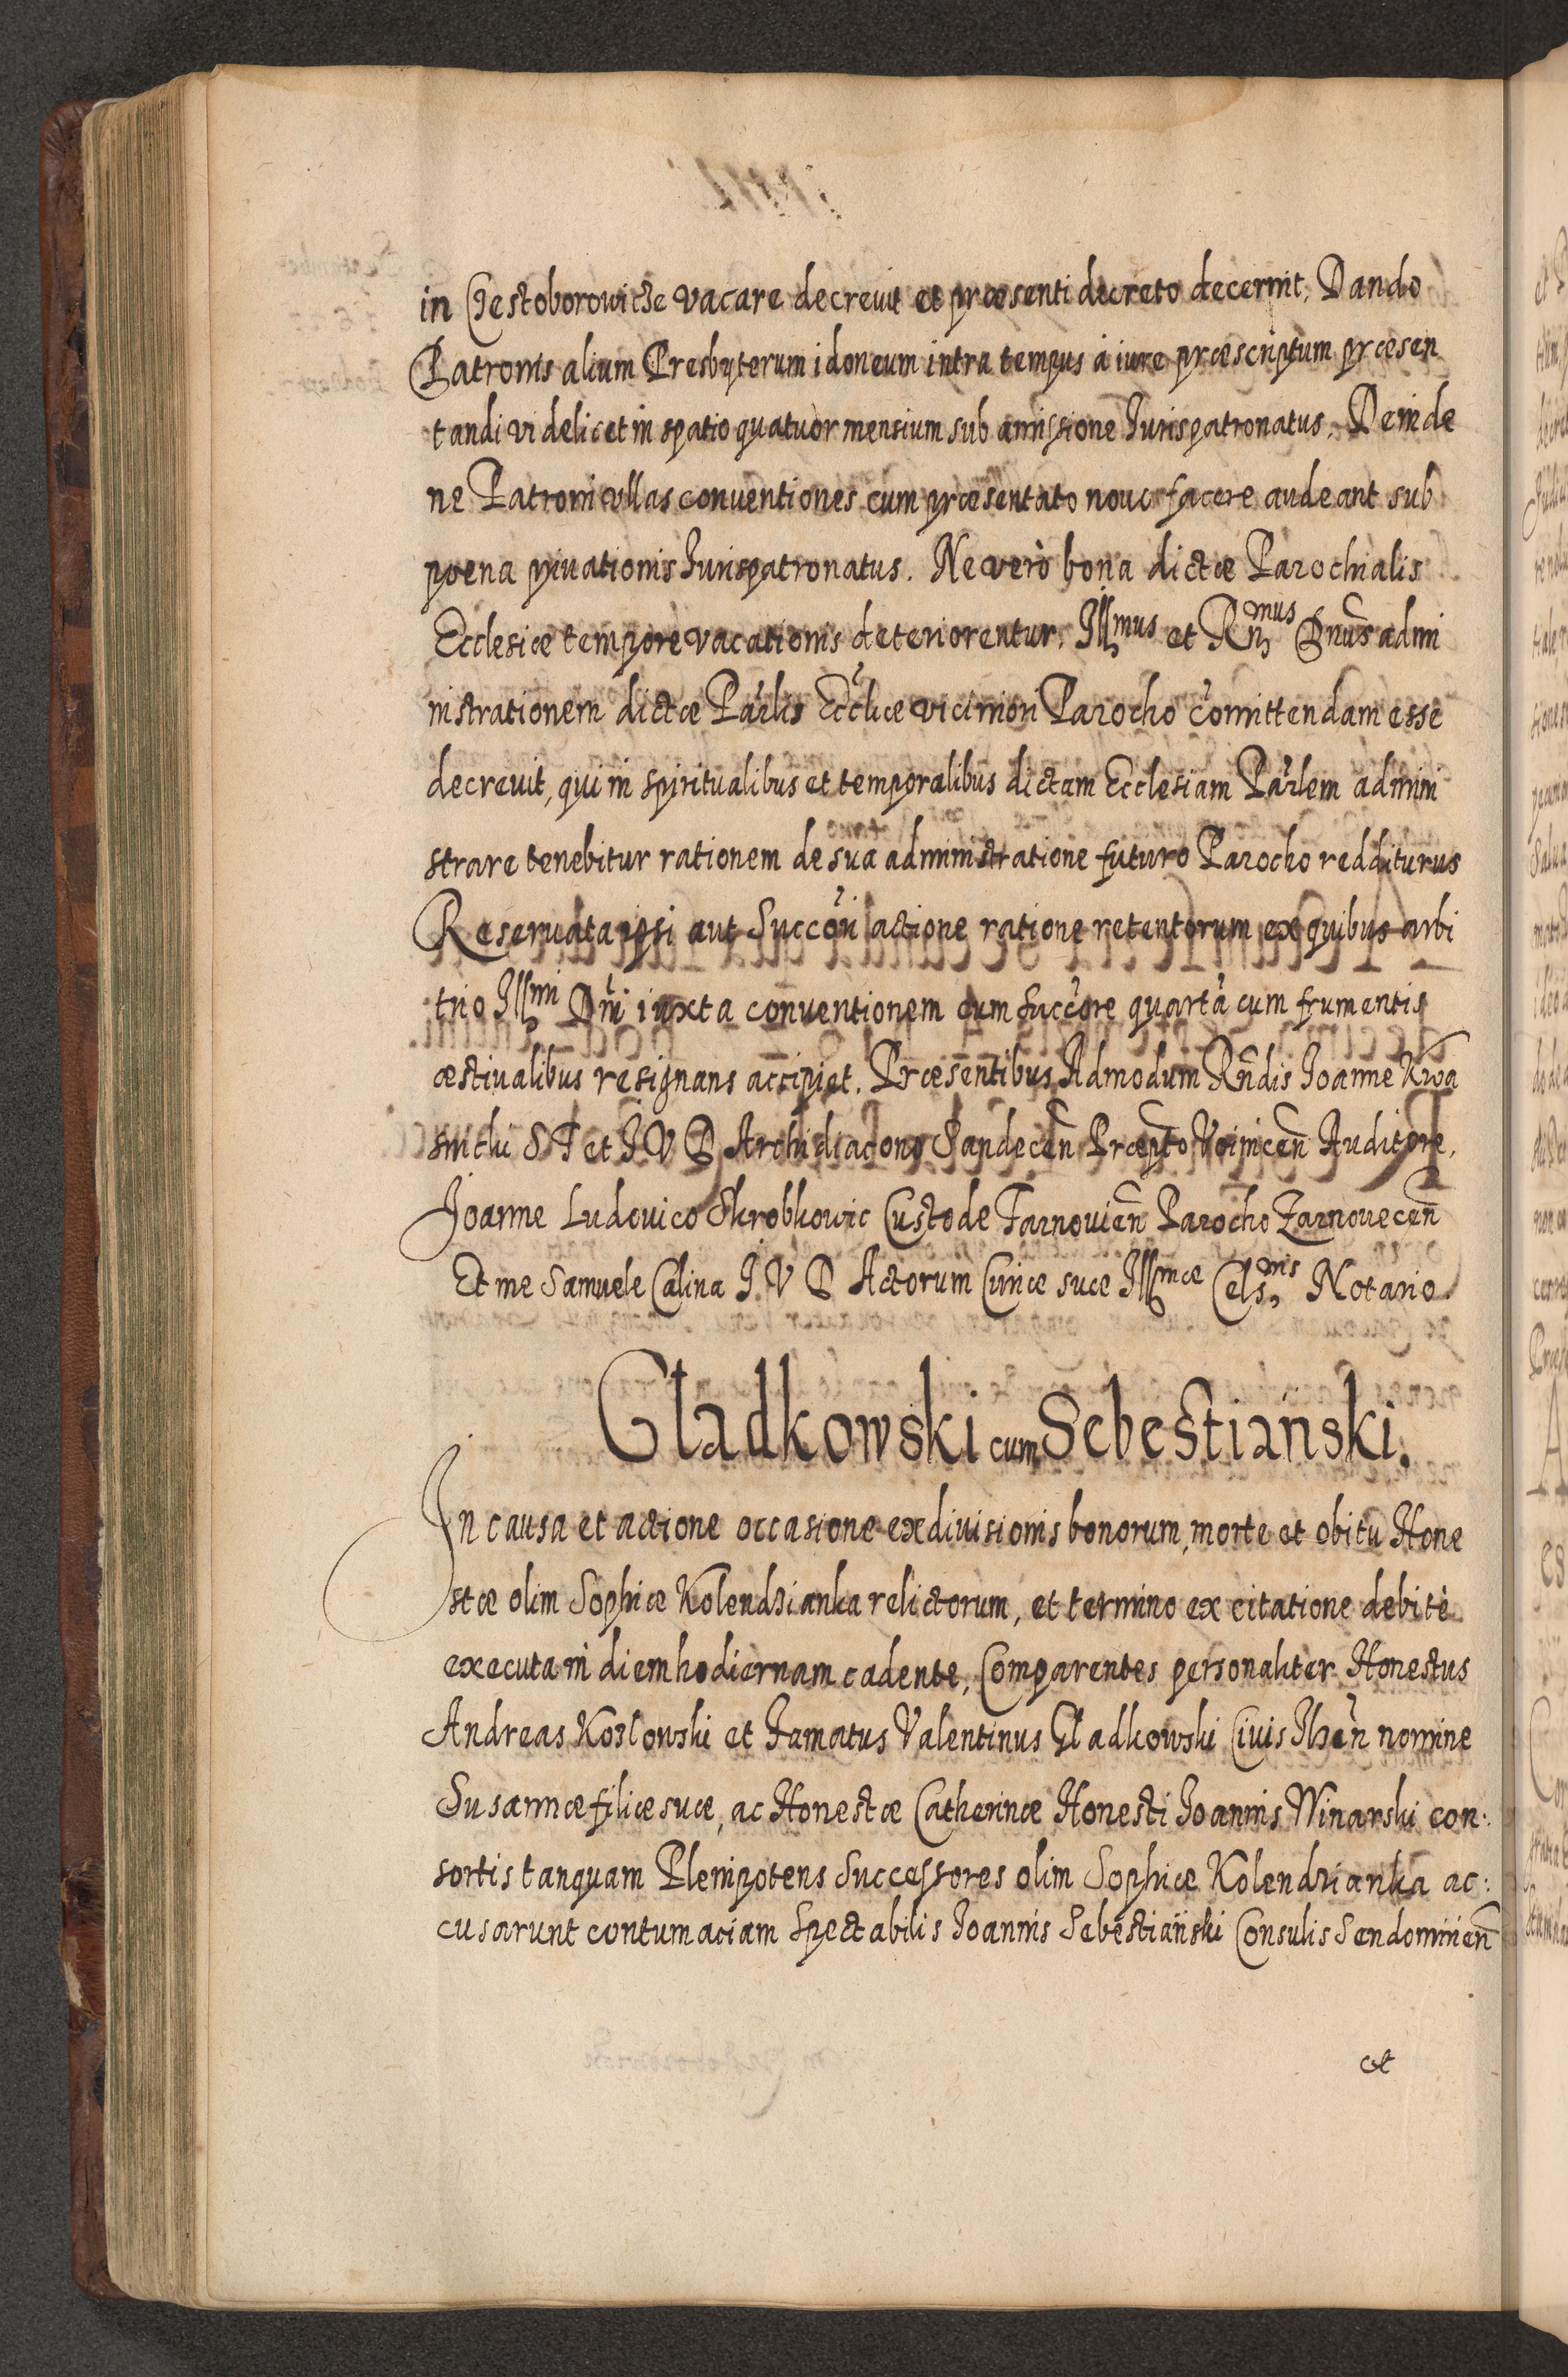 in Czestoborowicze vacare decrevit et præsenti decreto decernit, Dando
Patronis alium Presbyterum idoneum intra tempus à iure præscriptum præsen
tandi videlicet in spatio quatuor mensium sub amissione Jurispatronatus. Deinde
ne Patroni ullas conventiones cum præsentato novo facere audeant sub
poena privationis Jurispatronatus. Ne verò bona dictæ Parochialis
Ecclesiæ tempore vacationis deteriorentur. Illmus et Rnmus Dnus admi
nistrationem dictæ Parlis Eccliæ viciniori Parocho comittendam esse
decrevit, qui in spiritualibus et temporalibus dictam Ecclesiam Parlem admini
strare tenebitur rationem de sua administratione futuro Parocho redditurus
Reservata ipsi aut Succori actione ratione retentorum ex quibus arbi
trio Illmi Dni iuxta conventionem cum succore quarta cum frumentis
æstivalibus resignans accipiet. Præsentibus Admodum Rndis Joanne Kwa
sniclii S T et J V D Archidiacono Sandecen Præpto Voinicen Auditore,
Joanne Ludovico Skrobkowic Custode Tarnovien Parocho Zarnovecen
Et me Samuele Calina J. V D Actorum Curiæ suæ Illmæ Cels.nis Notario
Gladkowski cum Sebestiański.
In causa et actione occasione exdivisionis bonorum, morte et obitu Hone
stæ olim Sophiæ Kolendzianka relictorum, et termino ex citatione debitè
executa in diem hodiernam cadente, Comparentes personaliter Honestus
Andreas Kozlowski et Famatus Valentinus Gladkowski Civis Ilzen nomine
Susannæ filiæ suæ, ac Honestæ Catherinæ Honesti Joannis Winarski con:
sortis tanquam Plenipotens Successores olim Sophiæ Kolendzianka ac:
cusarunt contumaciam Spectabilis Joannis Sebestiański Consulis Sendomirien
et